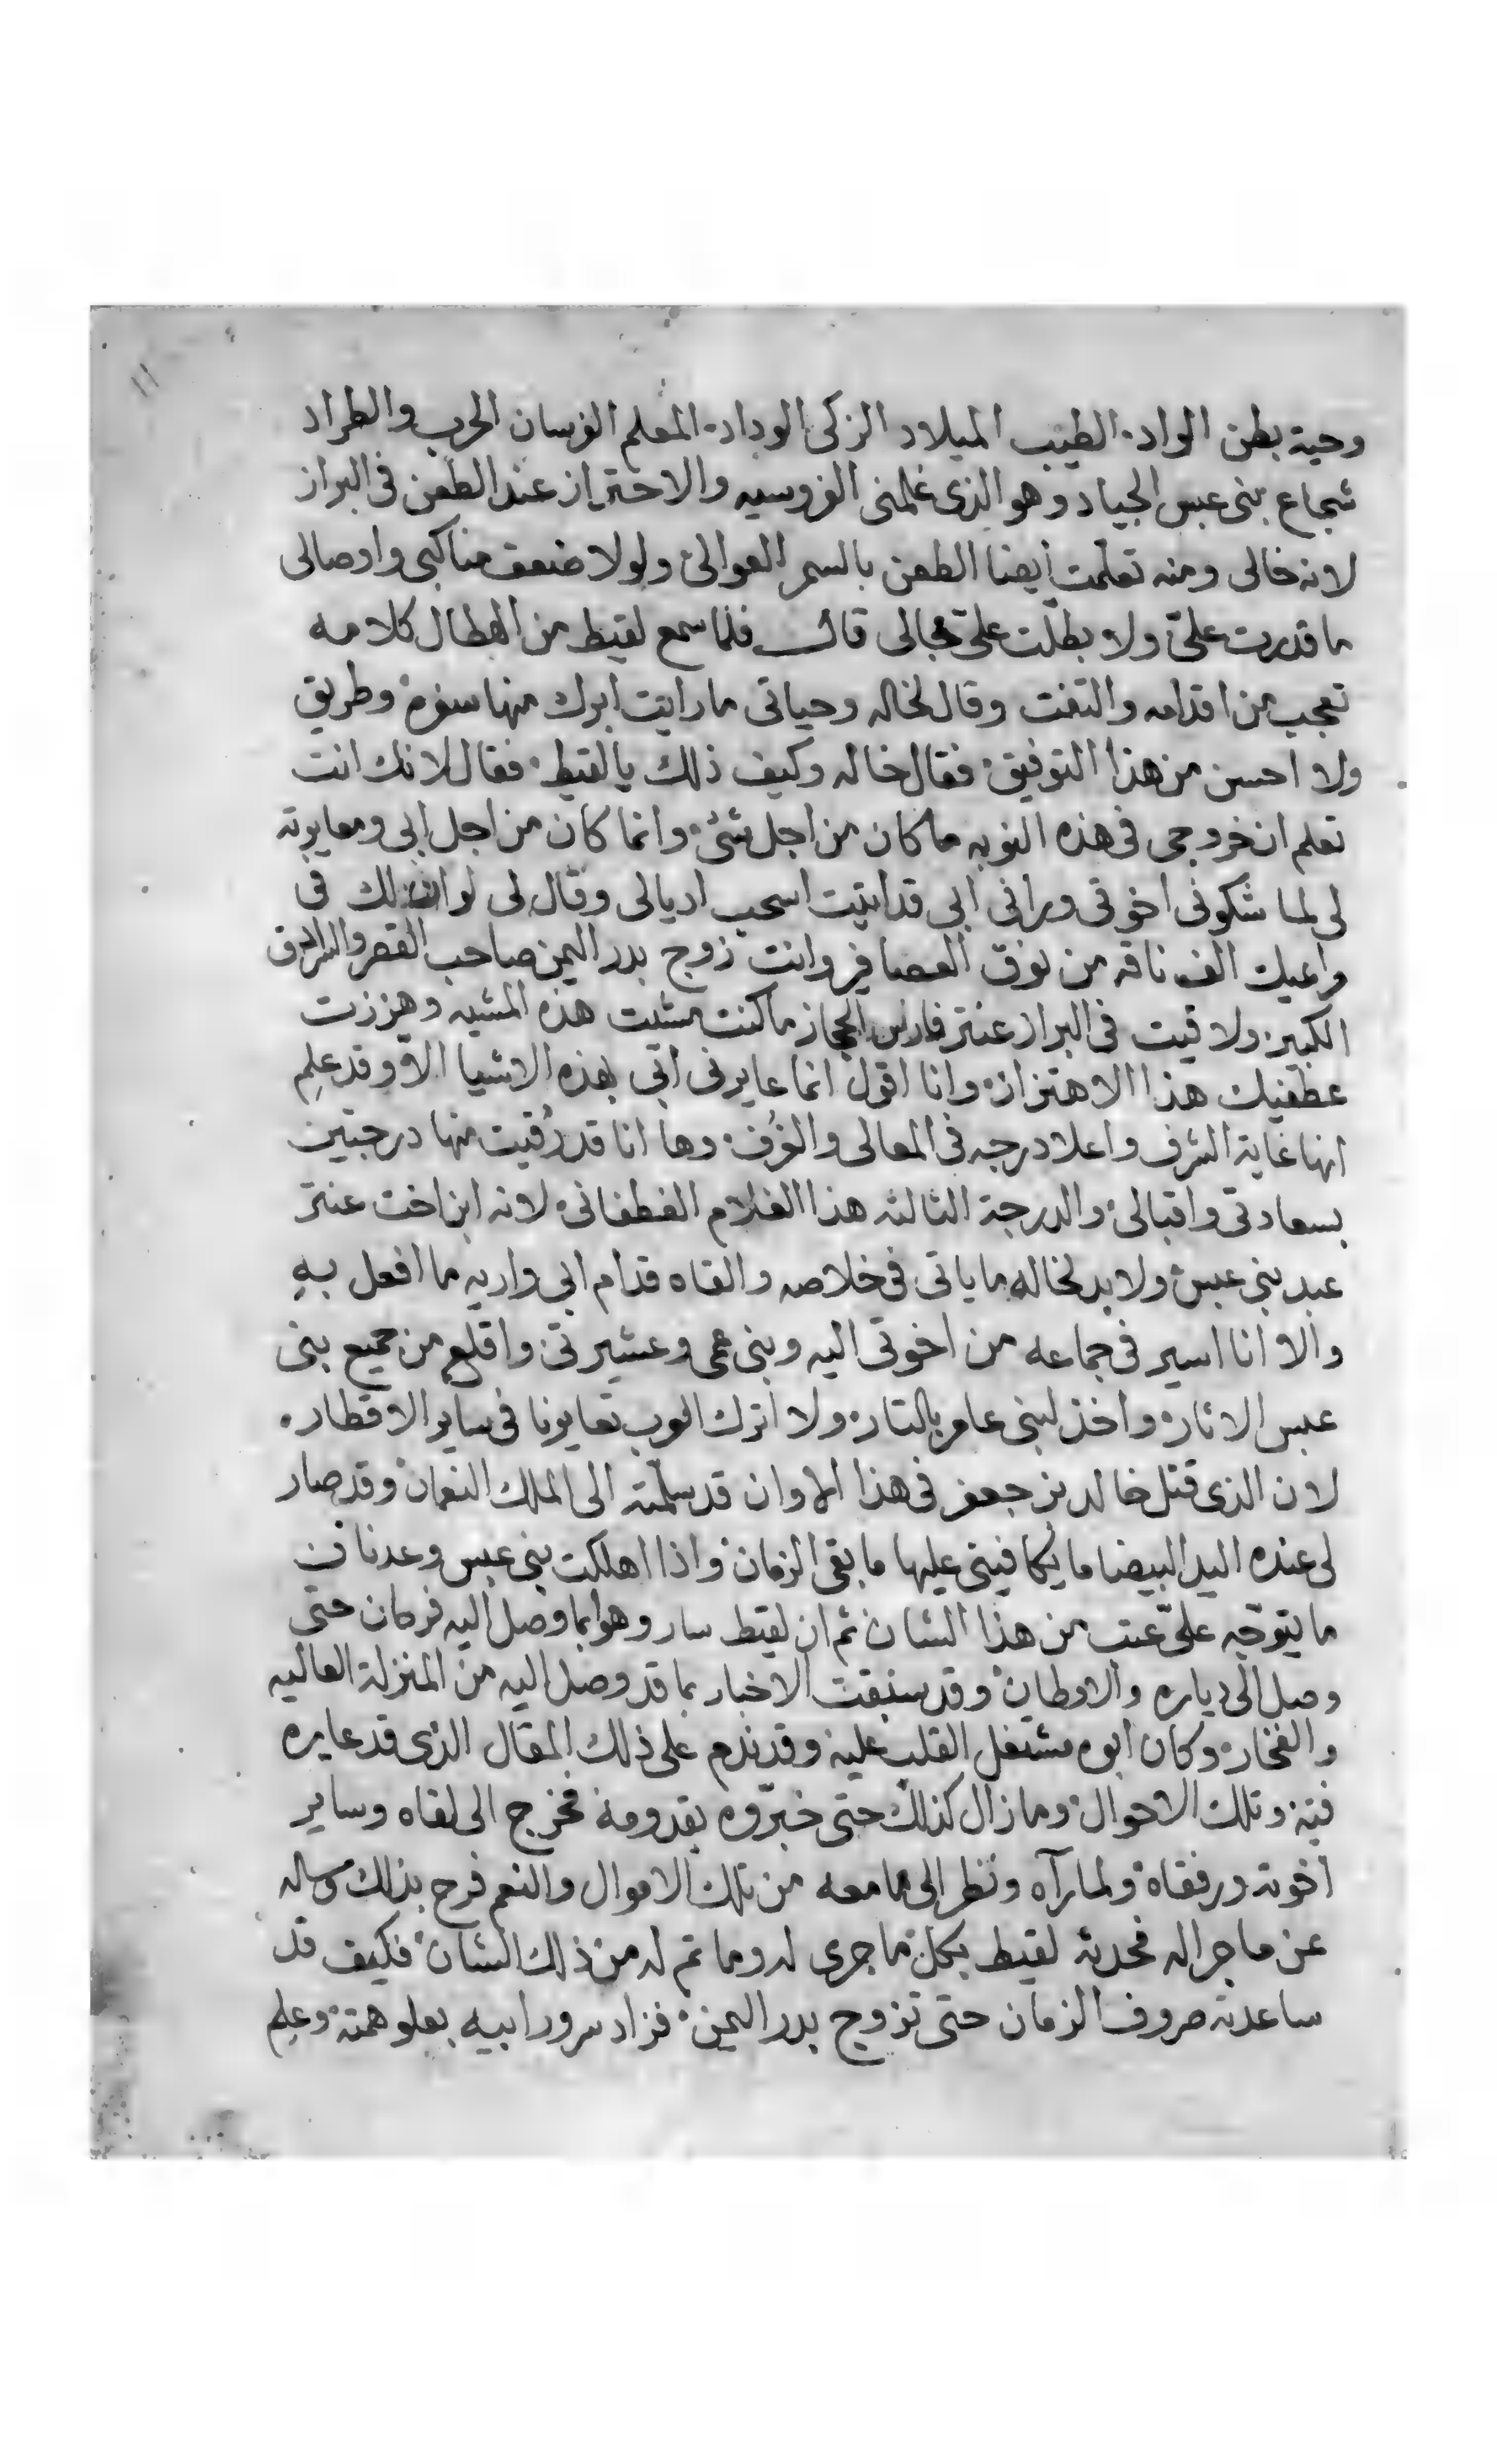 ١١
وحية بطن الواد. الطيب الميلاد الزكى الوداد. المعلم الفرسان الحرب والطراد
شجاع بنى عبس الجياد وهو الذى علمنى الفروسيه والاحتراز عند الطعن فى البراز
لانه خالى ومنه تعلمت ايضا الطعن بالسمر العوالى ولولا ضعف مناكبى واوصالى
ما قدرت علىّ ولا بطلت علىّ مجالى قال فلما سمع لقيط من الهطال كلامه
تعجب من اقدامه والتفت وقال لخاله وحياتى ما رايت ابرك منها سفره وطريق
ولا احسن من هذا التوفيق. فقال خاله وكيف ذلك يا لقيط. فقال لانك انت
تعلم ان خروجى فى هذه النوبه ما كان من اجل شئ وانما كان من اجل ابى ومعايرته
لى لما شكونى اخوتى ورانى ابى قد اتيت اسحب اديالى وقال لى لو ان لك فى
مراعيك الف ناقه من نوق العصافير وانت زوج بدر اليمن صاحب القصر والسرادق
الكبير. ولاقيت فى البراز عنتر فارس الحجاز ما كنت مشيت هذه المشيه وهززت
عطفيك هذا الاهتزاز. وانا اقول انما عايرنى ابى بهذه الاشيا الا وقد علم
انها غاية الشرف واعلا درجه فى المعالى والغرف. وها انا قد رقيت منها درجتين
بسعادتى واقبالى. والدرجة الثالثه هذا الغلام الغطفانى. لانه ابن اخت عنتر
عبد بنى عبس ولا بد لخاله ما ياتى فى خلاصه والقاه قدام ابى واريه ما افعل به
والا انا اسير فى جماعه من اخوتى اليه وبنى عمى وعشيرتى واقلع من جميع بنى
عبس الاثار. واخذ لبنى عامر بالتار. ولا اترك العرب تعايرنا فى ساير الاقطار.
لان الذى قتل خالد بن جعفر فى هذا الاوان قد سلمته الى الملك النعمان وقد صار
لى عنده اليد البيضا ما يكافينى عليها ما بقى الزمان واذا اهلكت بنى عبس وعدنان
ما يتوجه علىّ عتب من هذا الشان ثم ان لقيط سار وهو بما وصل اليه فرحان حتى
وصل الى دياره والاوطان وقد سبقت الاخبار بما قد وصل اليه من المنزلة العاليه
والفخار. وكان ابوه مشتغل القلب عليه وقد ندم على ذلك المقال الذى قد عايره
فيه وتلك الاحوال. وما زال كذلك حتى خبروه بقدومه فخرج الى لقاه وساير
اخوته ورفقاه ولما رآه ونظر الى ما معه من تلك الاموال والنعم فرح بذلك وساله
عن ما جرا له فحدثه لقيط بكل ما جرى له وما تم له من ذلك الشان. فكيف قد
ساعدته صروف الزمان حتى تزوج بدر اليمن. فزاد سرور ابيه بعلو همته وعلم